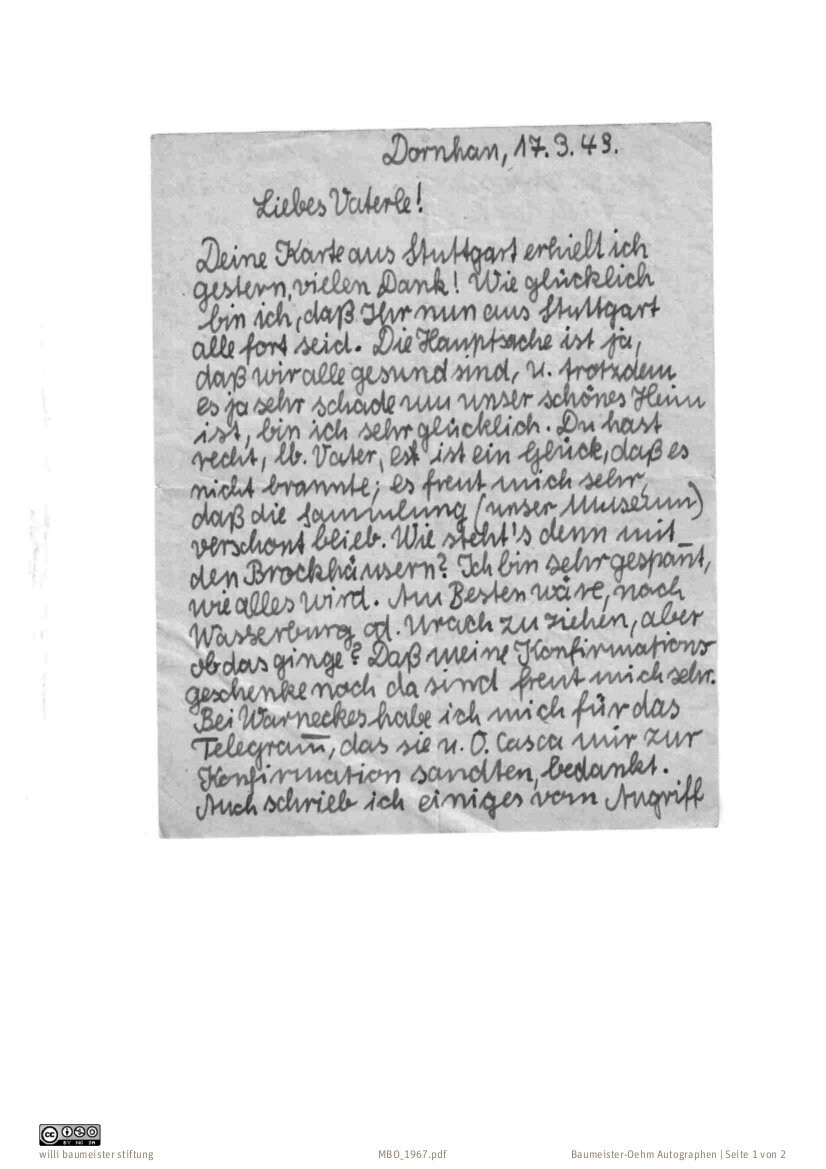 Dornhan, 17.3.43.
Liebes Vaterle!
Deine Karte aus Stuttgart erhielt ich
gestern, vielen Dank! Wie glücklich
bin ich, daß Ihr nun aus Stuttgart
alle fort seid. Die Hauptsache ist ja,
daß wir alle gesund sind, u. trotzdem
es ja sehr schade um unser schönes Heim
ist, bin ich sehr glücklich. Du hast
recht, lb. Vater, es ist ein Glück, daß es
nicht brannte; es freut mich sehr,
daß die Sammlung (unser Museum)
verschont blieb. Wie steht's denn mit
den Brockhäusern? Ich bin sehr gespan̄t,
wie alles wird. Am Besten wäre, nach
Wasserburg od. Urach zu ziehen, aber
ob das ginge? Daß meine Konfirmations
geschenke noch da sind freut mich sehr.
Bei Warneckes habe ich mich für das
Telegram̄, das sie u. O. Casca mir zur
Konfirmation sandten, bedankt.
Auch schrieb ich einiges vom Angriff
CC BY NC SA
willi baumeister stiftung
MBO_1967.pdf
Baumeister-Oehm Autographen | Seite 1 von 2